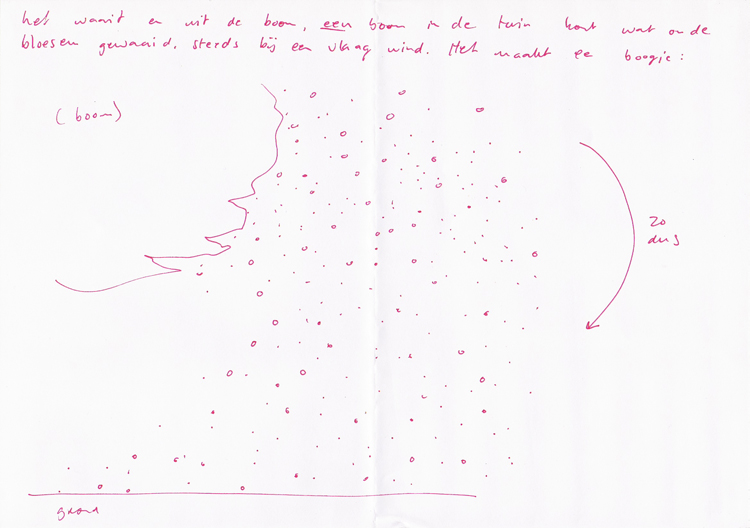 het waait en uit de boom, een boom in de tuin komt wat onde
bloesen gewaaid, steeds bij een vlaag wind. Het maakt ee boogje:
(boom)
zo
dus
grond